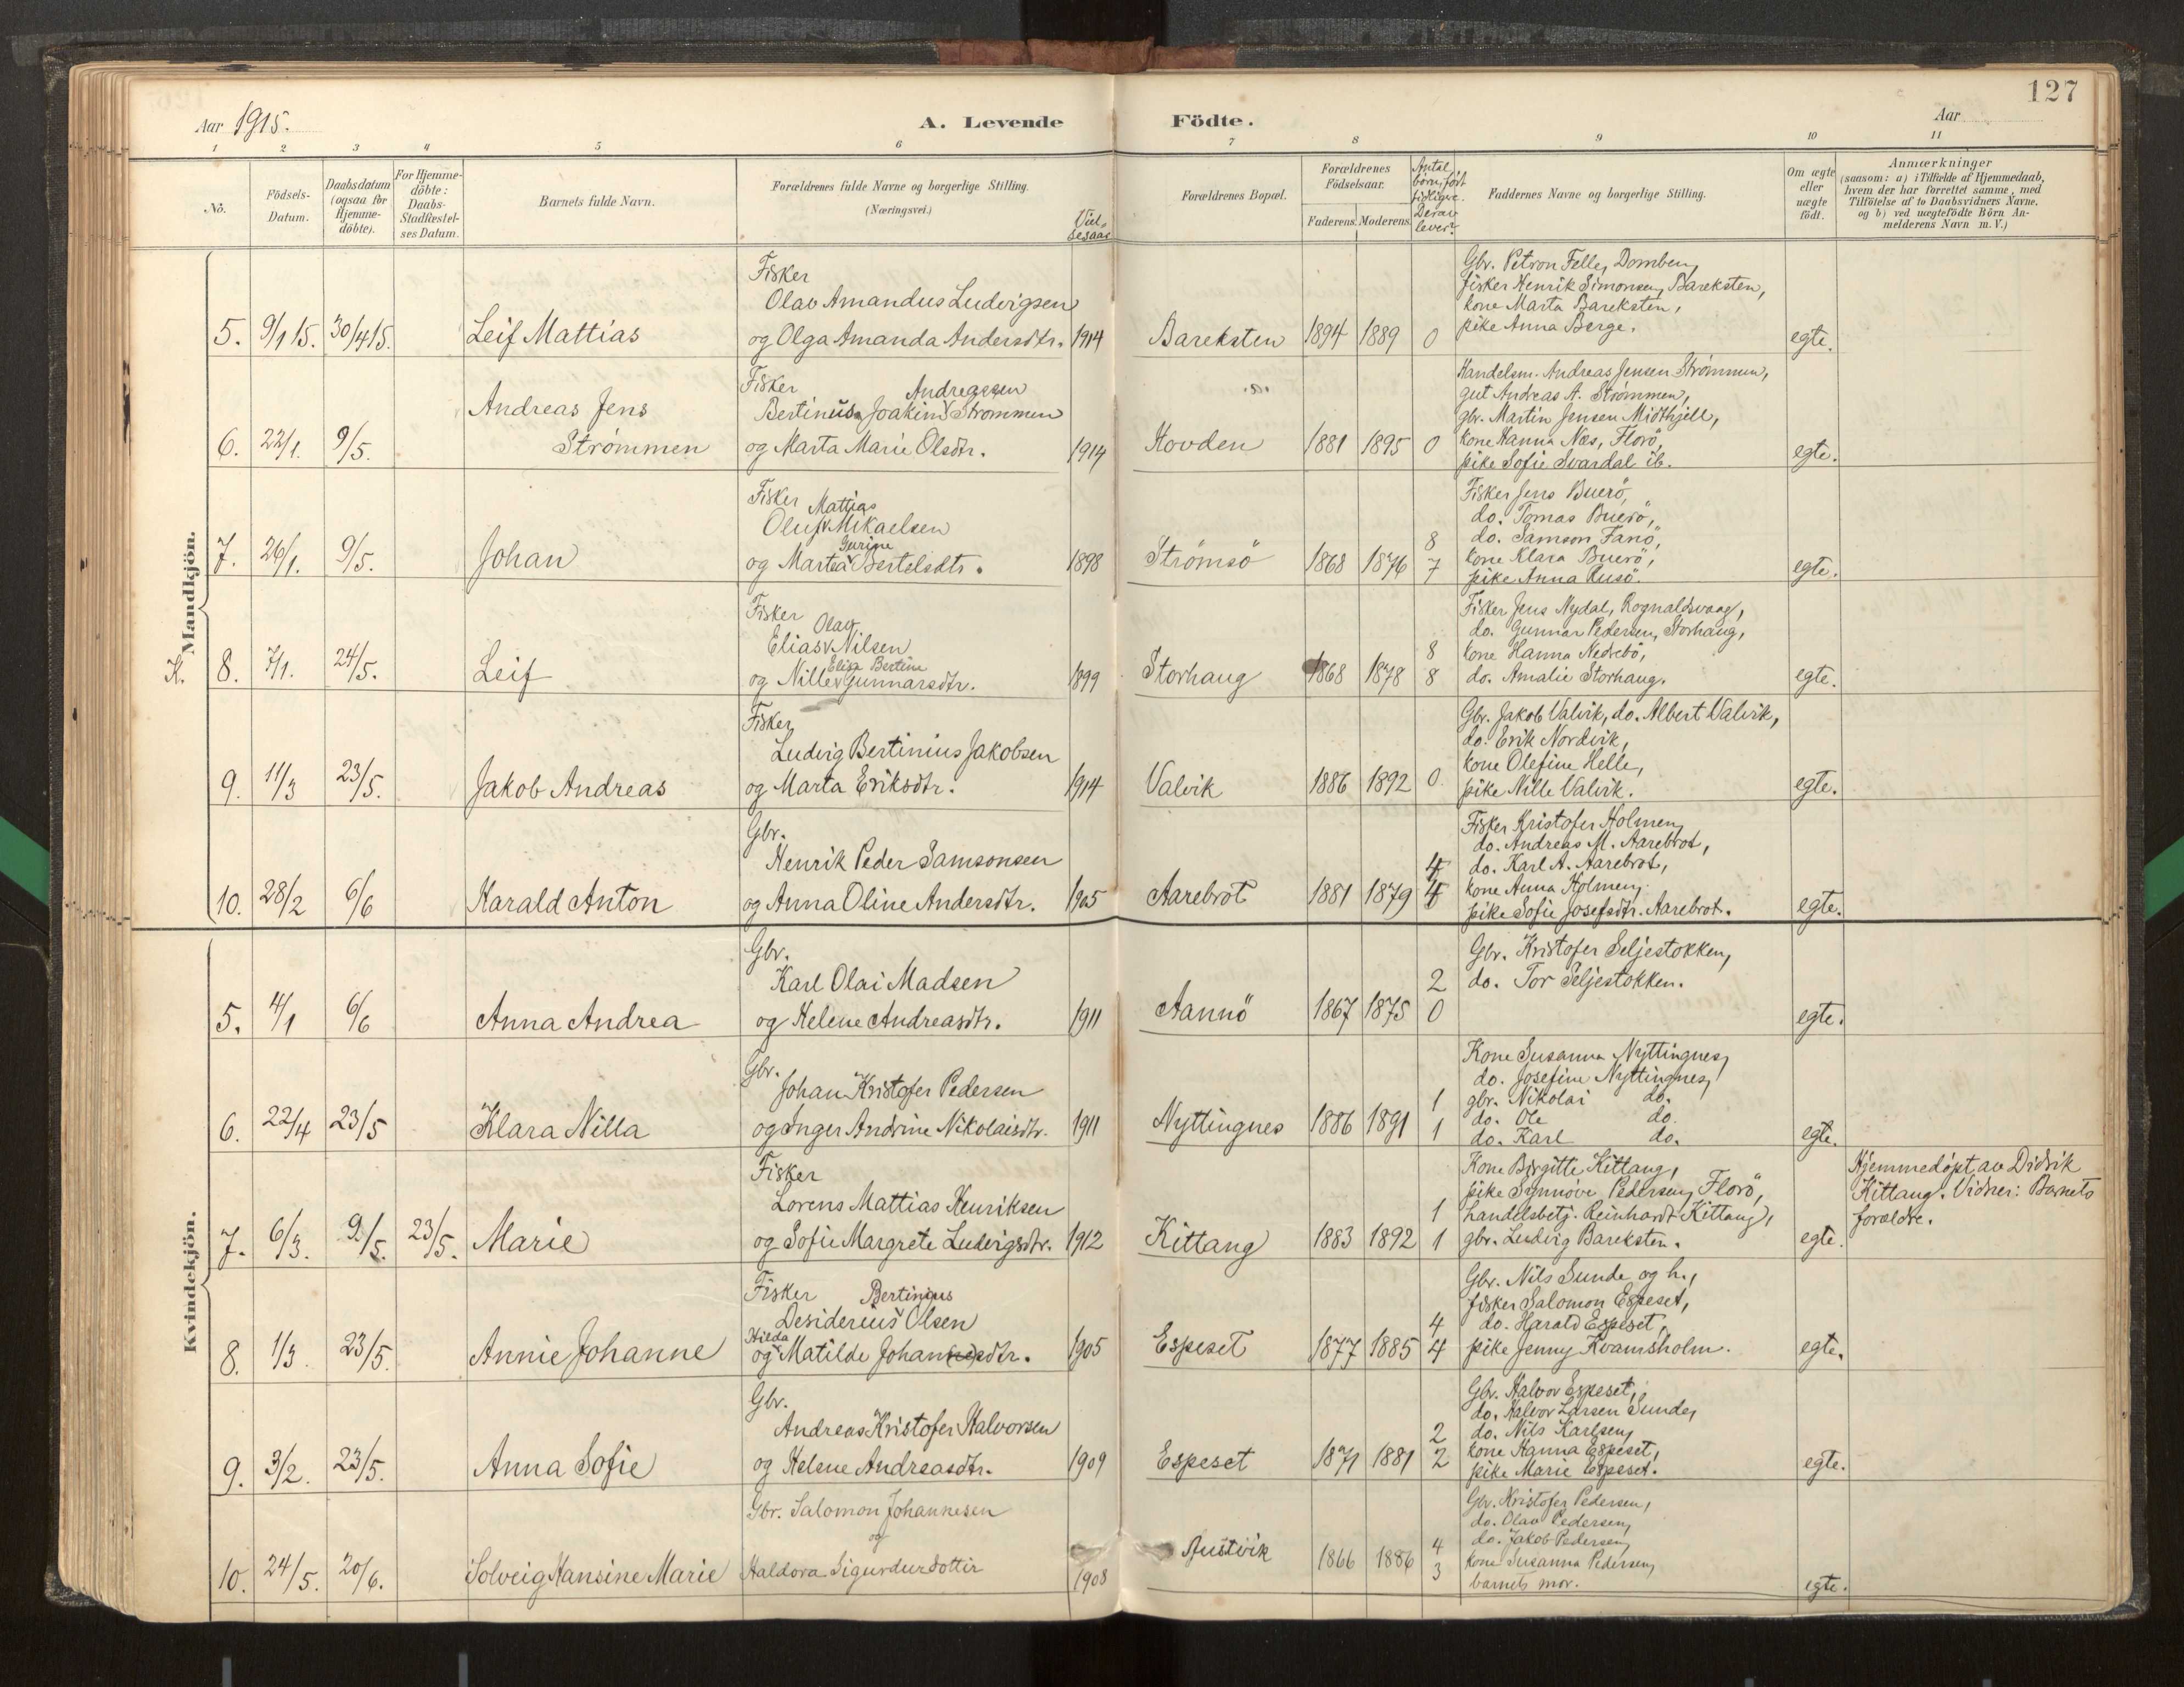 127
Aar 1915.
A. Levende Födte.
Aar
1 2 3 4 5 6 7 8 9 10 11
No.
Födsels-Datum.
Daabsdatum (ogsaa for Hjemme-döbte).
For Hjemme-döbte: Daabs-Stadfæstel-ses Datum.
Barnets fulde Navn.
Forældrenes fulde Navne og borgerlige Stilling.
(Næringsvei.)
Viel-sesaar
Forældrenes Bopæl.
Forældrenes Födselsaar.
Faderens. Moderens.
Antal börn, født tidligre. Derav lever.
Faddernes Navne og borgerlige Stilling.
Om ægte eller uægte födt.
Anmærkninger
(saasom: a) i Tilfælde af Hjemmedaab,
hvem der har forrettet samme, med
Tilföielse af to Daabsvidners Navne,
og b) ved uægtefödte Börn An-
melderens Navn m. V.)
Mandkjön.
K.
Fisker
Olav Amandus Ludvigsen
5. 9/1 15. 30/4 15. Leif Mattias og Olga Amanda Andersdtr. 1914 Bareksten 1894 1889 0 egte.
Gbr. Petron Felle, Domben,
fisker Henrik Simonsen, Bareksten,
kone Marta Bareksten,
pike Anna Berge.
Fisker Andreassen
Andreas Jens Bertinus Joakim Strømmen
6. 22/1. 9/5. Strömmen og Marta Marie Olsdtr. 1914 Hovden 1881 1895 0 egte.
Handelsm. Andreas Jensen Strömmen,
gut Andreas A. Strömmen,
gbr. Martin Jensen Midthjell,
kone Hanna Næs, Florö,
pike Sofie Svardal ib.
Fisker Mattias
Oluf Mikaelsen
Gurine
7. 26/1. 9/5. Johan og Martea Bertelsdtr. 1898 Strömsö 1868 1876 8 7 egte.
Fisker Jens Buerö,
do. Tomas Buerö,
do. Samson Fanö,
kone Klara Buerö,
pike Anna Rusö.
Fisker Olav
Elias Nilsen
Elisa Bertine
8. 7/1. 24/5. Leif og Nille Gunnarsdtr. 1899 Storhaug 1868 1878 8 8 egte.
Fisker Jens Nydal, Rognaldsvaag,
do. Gunnar Pedersen, Storhaug,
kone Hanna Nedrebö,
do. Amalie Storhaug.
Fisker
Ludvig Bertinius Jakobsen
9. 11/3 23/5. Jakob Andreas og Marta Eriksdtr. 1914 Valvik 1886 1892 0. egte.
Gbr. Jakob Valvik, do. Albert Valvik,
do. Erik Nordvik,
kone Olefine Helle,
pike Nille Valvik.
Gbr.
Henrik Peder Samsonsen
10. 28/2 6/6 Harald Anton og Anna Oline Andersdtr. 1905 Aarebrot 1881 1879 4 4 egte.
Fisker Kristofer Holmen,
do. Andreas M. Aarebrot,
do. Karl A. Aarebrot,
kone Anna Holmen,
pike Sofie Josefsdtr. Aarebrot.
Kvindekjön.
Gbr.
Karl Olai Madsen
5. 4/1 6/6 Anna Andrea og Helene Andreasdtr. 1911 Aannö 1867 1875 2 0 egte.
Gbr. Kristofer Seljestokken,
do. Tor Seljestokken.
Gbr.
Johan Kristofer Pedersen
6. 22/4 23/5 Klara Nilla og Inger Andrine Nikolaisdtr. 1911 Nyttingnes 1886 1891 1 1 egte.
Kone Susanna Nyttingnes,
do. Josefine Nyttingnes,
gbr. Nikolai do.
do. Ole do.
do. Karl do.
Fisker
Lorens Mattias Henriksen
7. 6/3. 9/5. 23/5. Marie og Sofie Margrete Ludvigsdtr. 1912 Kittang 1883 1892 1 1 egte.
Kone Birgitte Kittang,
pike Synnöve Pedersen, Florö,
handelsbetj. Reinhardt Kittang,
gbr. Ludvig Bareksten.
Hjemmedöpt av Didrik
Kittang. Vidner: Barnets
forældre.
Fisker Bertinius
Desiderius Olsen
Hilda
8. 1/3 23/5. Annie Johanne og Matilde Johannesdtr. 1905 Espeset 1877 1885 4 4 egte.
Gbr. Nils Sunde og h.,
fisker Salomon Espeset,
do. Harald Espeset,
pike Jenny Kvamsholm.
Gbr.
Andreas Kristofer Halvorsen
9. 3/2. 23/5. Anna Sofie og Helene Andreasdtr. 1909 Espeset 1871 1881 2 2 egte.
Gbr. Halvor Espeset,
do. Halvor Larsen Sunde,
do. Nils Karlsen,
kone Hanna Espeset,
pike Marie Espeset.
Gbr. Salomon Johannesen
og
10. 24/5. 20/6. Solveig Hansine Marie Haldora Sigurdurdottir 1908 Austvik 1866 1886 4 3 egte.
Gbr. Kristofer Pedersen,
do. Olav Pedersen,
do. Jakob Pedersen,
kone Susanna Pedersen,
barnets mor.